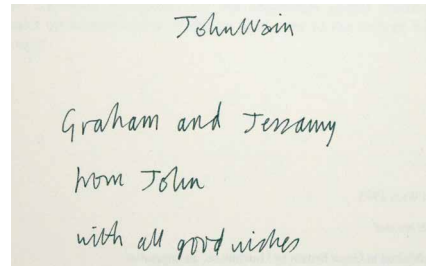 John Wain
Graham and Jessamy
from John
with all good wishes